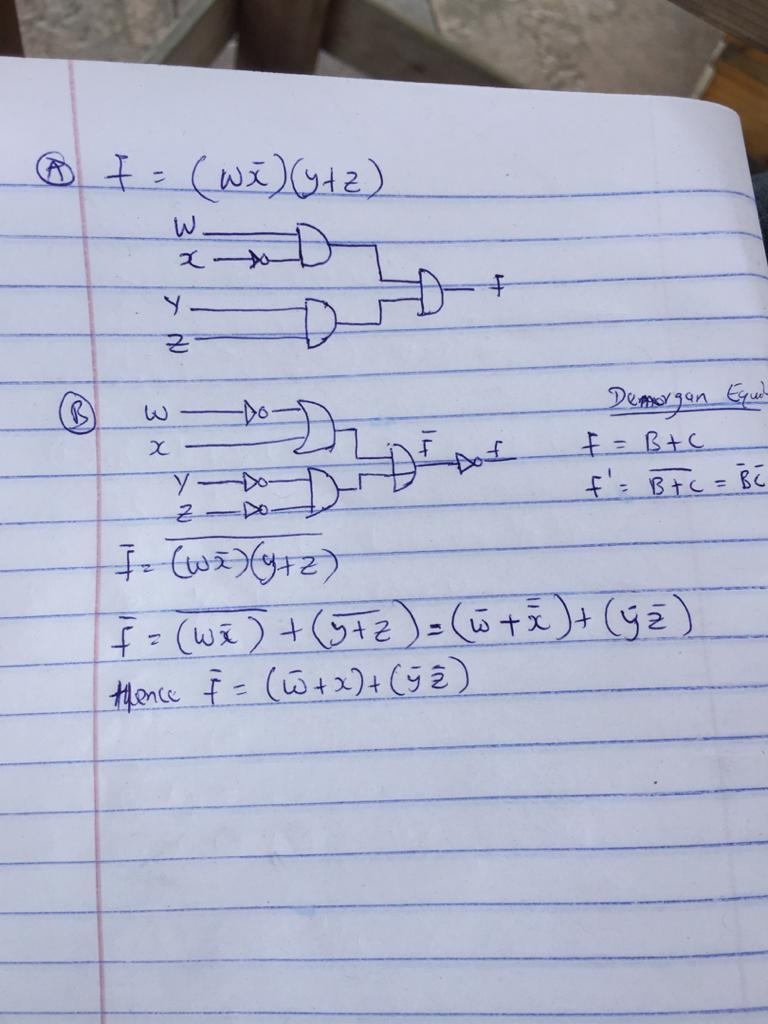 Ⓐ F = (wx̄)(y+z)
W
x
Y
Z
F
Ⓑ
w
x
Y
Z
F̄
f
Demorgan
F = B+C
f' = \overline{B+C} = B̄C̄
F̄ = \overline{(wx̄)(y+z)}
f̄ = \overline{(wx̄)} + \overline{(y+z)} = (w̄ + x̿) + (ȳ z̄)
Hence F̄ = (w̄+x)+(ȳ z̄)